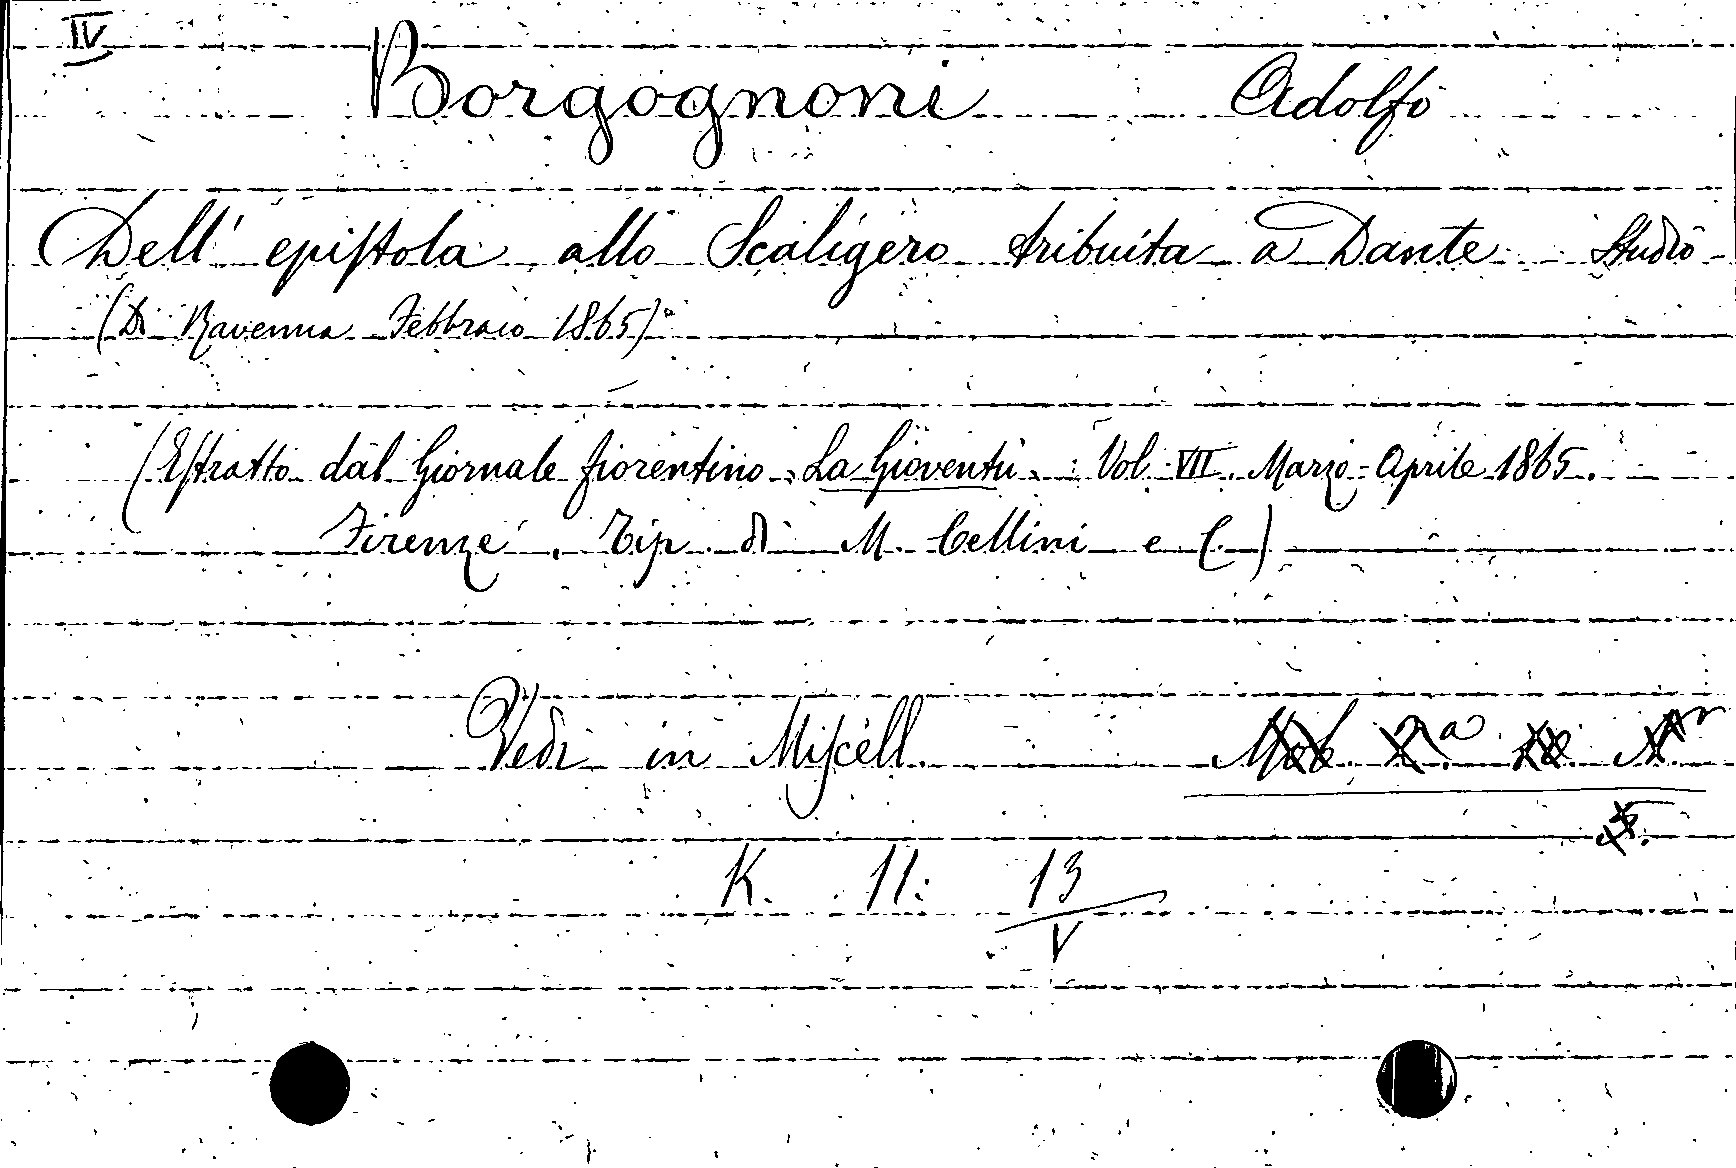 IV
Borgognoni Adolfo
Dell' epistola allo Scaligero tribuita a Dante Studio
(Di Ravenna Febbraio 1865).
(Estratto dal Giornale fiorentino La Gioventù. Vol. VII. Marzo-Aprile 1865.
Firenze, Tip. di M. Cellini e C.)
Vedi in Miscell.
K. 11: 13
V